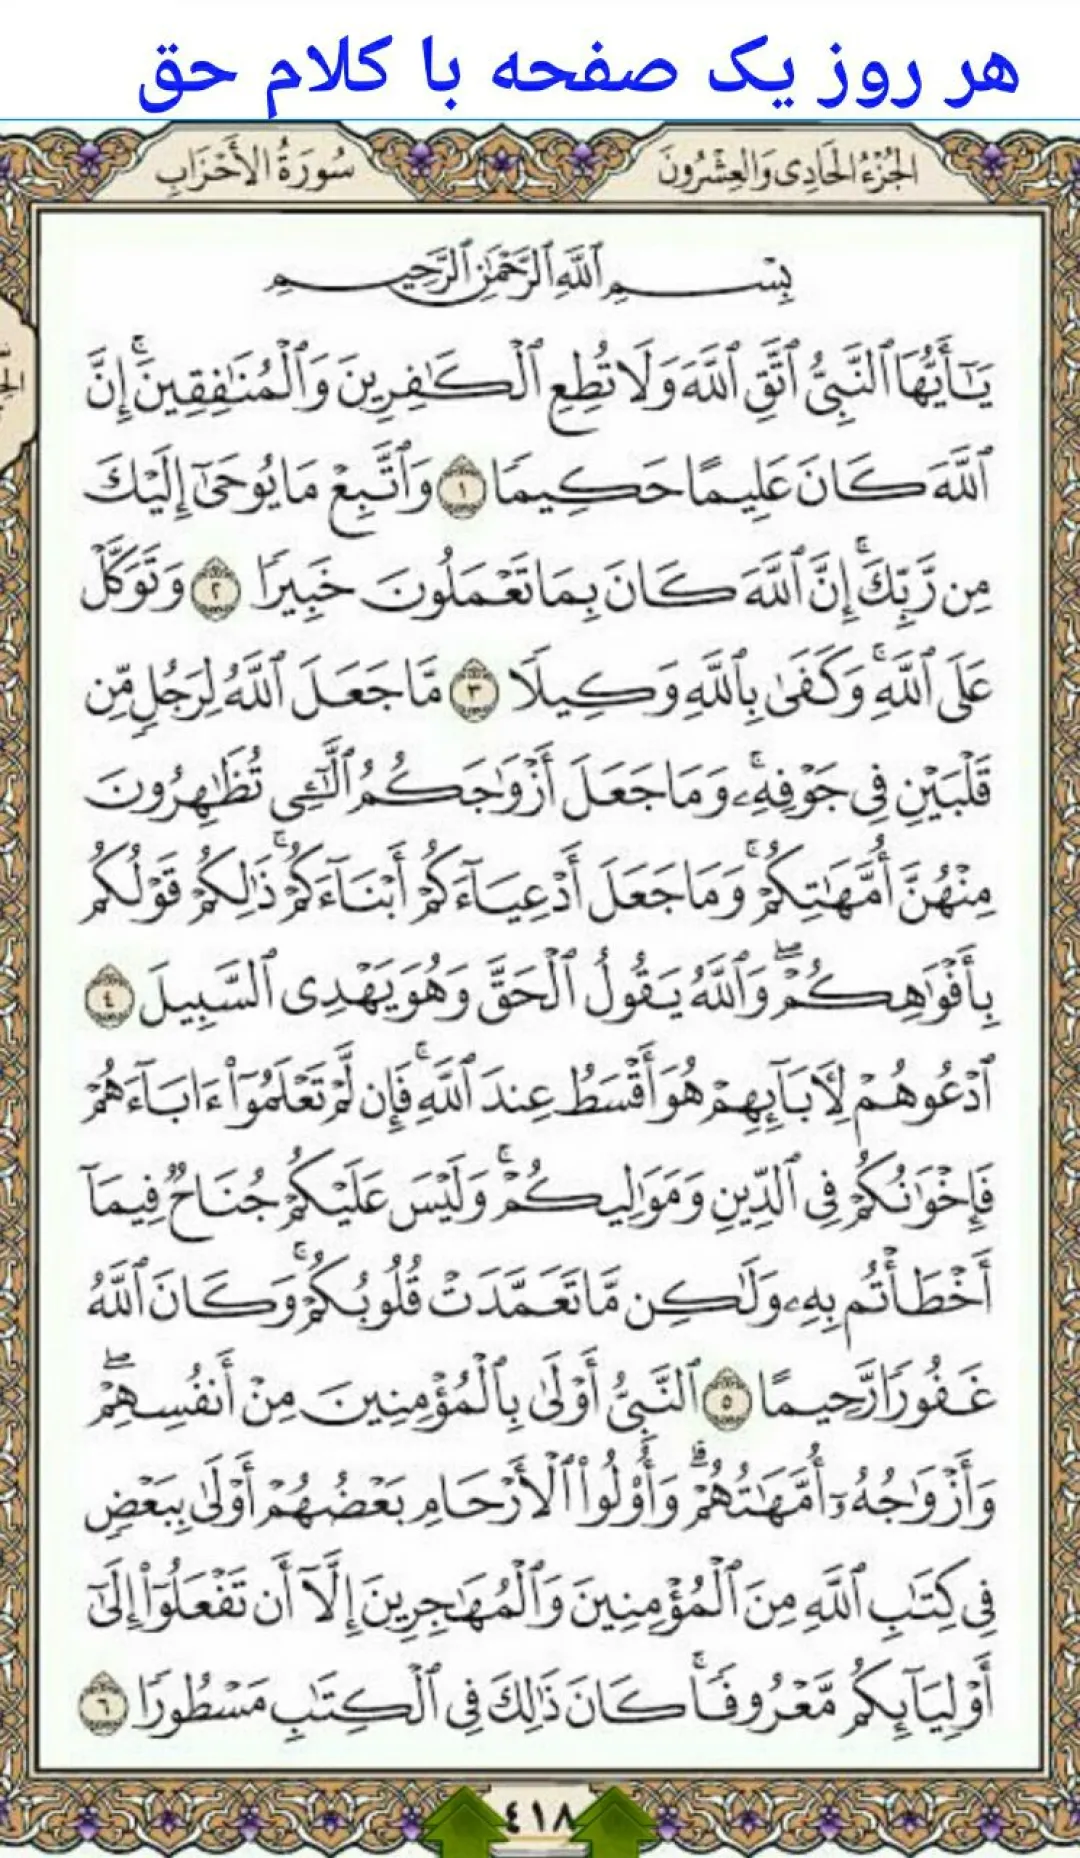 هر روز یک صفحه با کلام حق
الجُزْءُ الحَادِى وَالعِشْرُونَ
سُورَةُ الأَحْزَابِ
بِسْمِ ٱللَّهِ ٱلرَّحْمَٰنِ ٱلرَّحِيمِ
يَٰٓأَيُّهَا ٱلنَّبِىُّ ٱتَّقِ ٱللَّهَ وَلَا تُطِعِ ٱلْكَٰفِرِينَ وَٱلْمُنَٰفِقِينَ ۚ إِنَّ
ٱللَّهَ كَانَ عَلِيمًا حَكِيمًا ١ وَٱتَّبِعْ مَا يُوحَىٰٓ إِلَيْكَ
مِن رَّبِّكَ ۚ إِنَّ ٱللَّهَ كَانَ بِمَا تَعْمَلُونَ خَبِيرًا ٢ وَتَوَكَّلْ
عَلَى ٱللَّهِ ۚ وَكَفَىٰ بِٱللَّهِ وَكِيلًا ٣ مَّا جَعَلَ ٱللَّهُ لِرَجُلٍ مِّن
قَلْبَيْنِ فِى جَوْفِهِۦ ۚ وَمَا جَعَلَ أَزْوَٰجَكُمُ ٱلَّٰٓـِٔى تُظَٰهِرُونَ
مِنْهُنَّ أُمَّهَٰتِكُمْ ۚ وَمَا جَعَلَ أَدْعِيَآءَكُمْ أَبْنَآءَكُمْ ۚ ذَٰلِكُمْ قَوْلُكُم
بِأَفْوَٰهِكُمْ ۖ وَٱللَّهُ يَقُولُ ٱلْحَقَّ وَهُوَ يَهْدِى ٱلسَّبِيلَ ٤
ٱدْعُوهُمْ لِـَٔابَآئِهِمْ هُوَ أَقْسَطُ عِندَ ٱللَّهِ ۚ فَإِن لَّمْ تَعْلَمُوٓا۟ ءَابَآءَهُمْ
فَإِخْوَٰنُكُمْ فِى ٱلدِّينِ وَمَوَٰلِيكُمْ ۚ وَلَيْسَ عَلَيْكُمْ جُنَاحٌ فِيمَآ
أَخْطَأْتُم بِهِۦ وَلَٰكِن مَّا تَعَمَّدَتْ قُلُوبُكُمْ ۚ وَكَانَ ٱللَّهُ
غَفُورًا رَّحِيمًا ٥ ٱلنَّبِىُّ أَوْلَىٰ بِٱلْمُؤْمِنِينَ مِنْ أَنفُسِهِمْ ۖ
وَأَزْوَٰجُهُۥٓ أُمَّهَٰتُهُمْ ۗ وَأُو۟لُوا۟ ٱلْأَرْحَامِ بَعْضُهُمْ أَوْلَىٰ بِبَعْضٍ
فِى كِتَٰبِ ٱللَّهِ مِنَ ٱلْمُؤْمِنِينَ وَٱلْمُهَٰجِرِينَ إِلَّآ أَن تَفْعَلُوٓا۟ إِلَىٰٓ
أَوْلِيَآئِكُم مَّعْرُوفًا ۚ كَانَ ذَٰلِكَ فِى ٱلْكِتَٰبِ مَسْطُورًا ٦
٤١٨